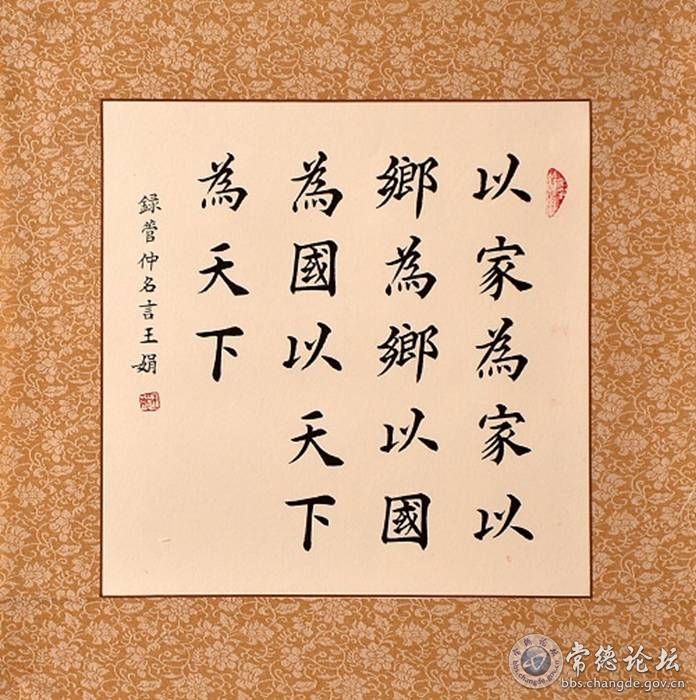 以家為家以
鄉為鄉以國
為國以天下
為天下
録管仲名言王娟
常德论坛
bbs.changde.gov.cn